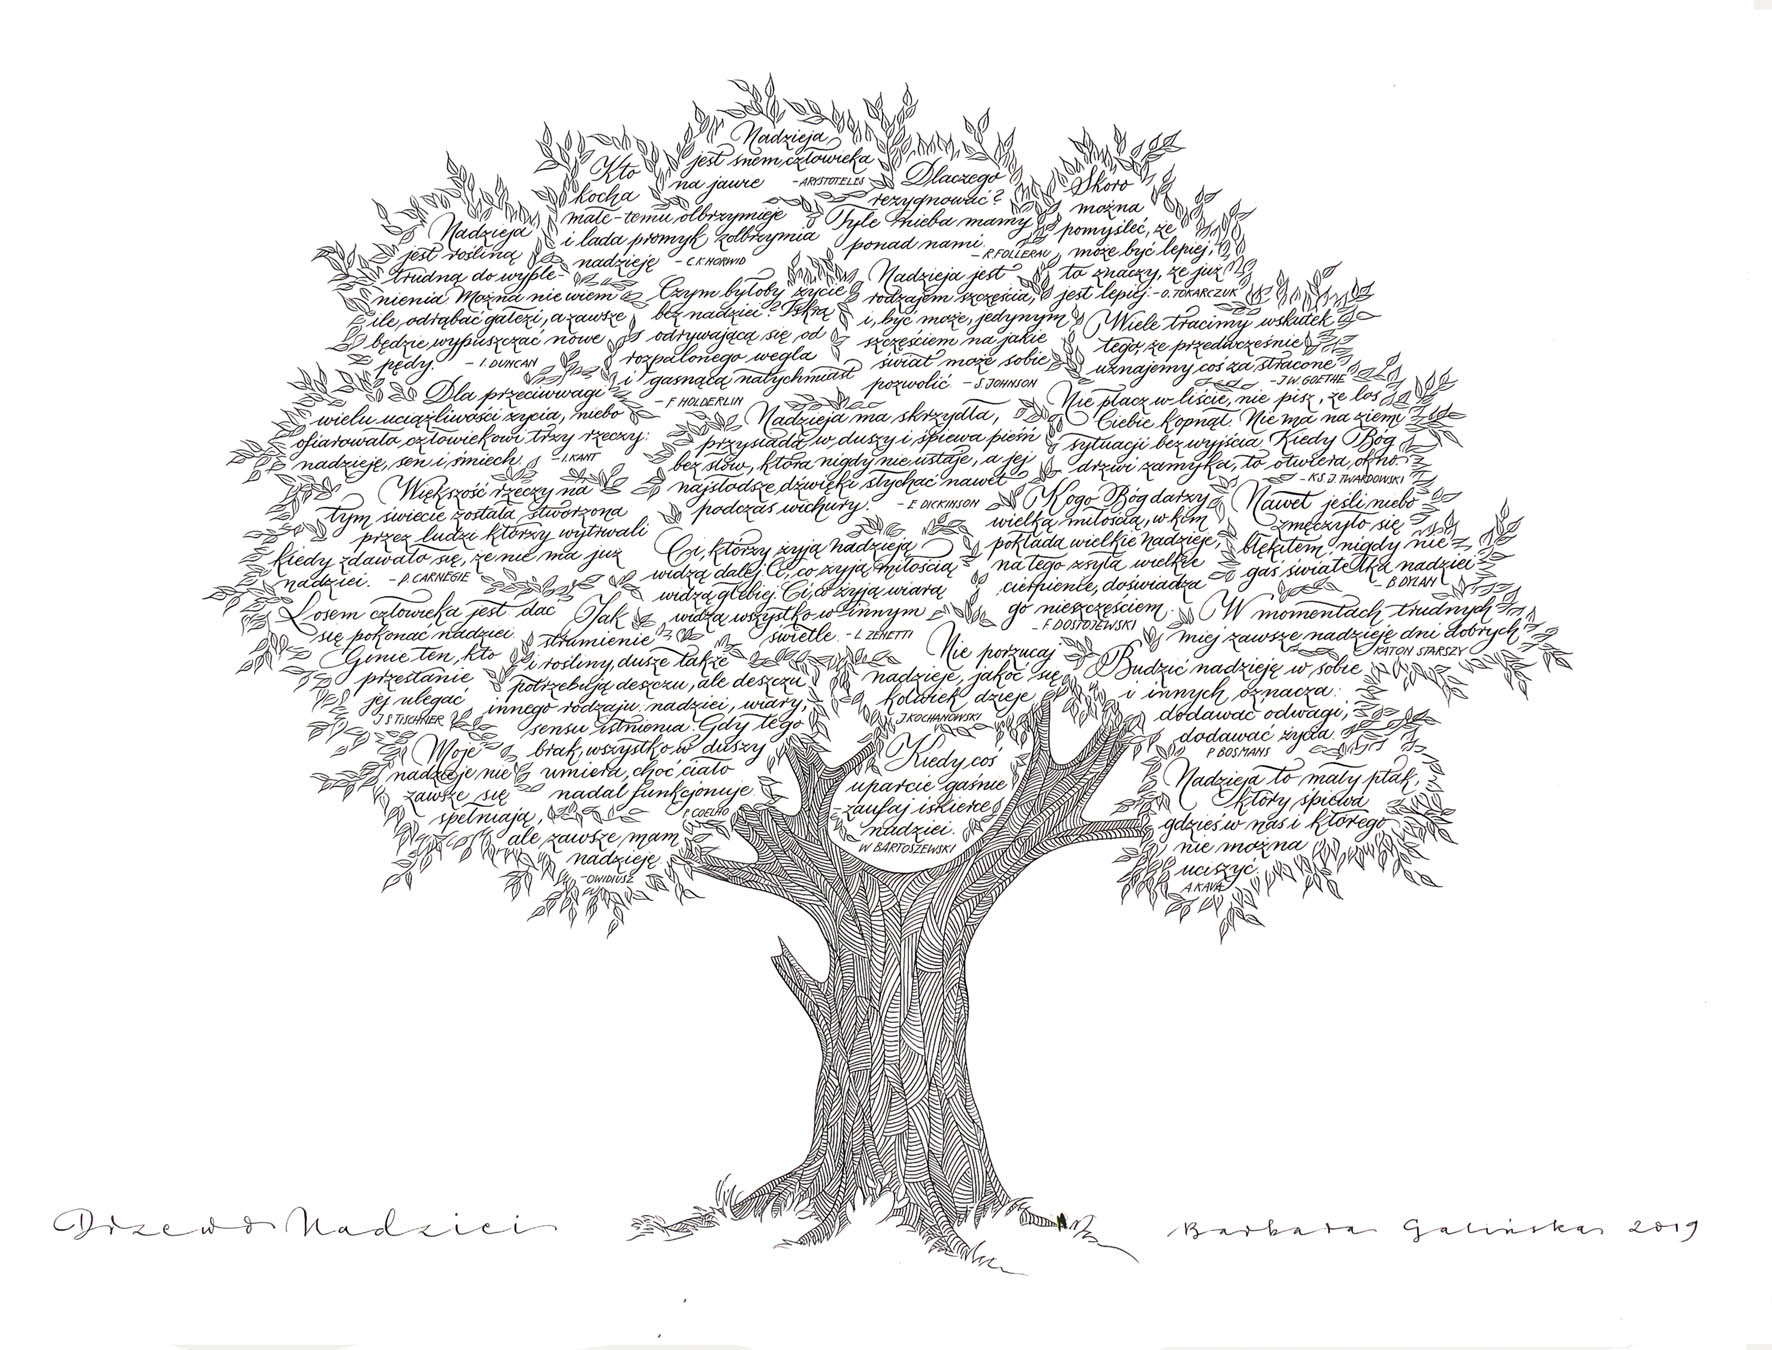 Nadzieja
jest snem człowieka
na jawie - ARYSTOTELES
Kto
kocha
małe-temu olbrzymieje
i lada promyk zolbrzymia
nadzieję - C K NORWID
Dlaczego
rezygnować?
Tyle nieba mamy
ponad nami.
- R FOLLERAU
Skoro
można
pomyśleć, że
może być lepiej,
to znaczy, że już
jest lepiej. - O. TOKARCZUK
Nadzieja
jest rośliną
trudną do wyple-
nienia Można nie wiem
ile, odrąbać gałęzi, a zawsze
będzie wypuszczać nowe
pędy. - I. DUNCAN
Czym byłoby życie
bez nadziei? Iskrą
odrywającą się od
rozpalonego węgla
i gasnącą natychmiast
- F HOLDERLIN
Nadzieja jest
rodzajem szczęścia,
i, być może, jedynym
szczęściem na jakie
świat może sobie
pozwolić - S. JOHNSON
Wiele tracimy wskutek
tego, że przedwcześnie
uznajemy coś za stracone
- J W. GOETHE
Dla przeciwwagi
wielu uciążliwości życia, niebo
ofiarowało człowiekowi trzy rzeczy:
nadzieję, sen i, śmiech. - I. KANT
Nadzieja ma skrzydła,
przysiada w duszy i śpiewa pieśń
bez słów, która nigdy nie ustaje, a jej
najsłodsze dźwięki słychać nawet
podczas wichury. - E DICKINSON
Nie płacz w liście, nie pisz, że los
Ciebie kopnął. Nie ma na ziemi
sytuacji bez wyjścia. Kiedy Bóg
drzwi zamyka, to otwiera okno.
- KS. J. TWARDOWSKI
Większość rzeczy na
tym świecie została stworzona
przez ludzi którzy wytrwali
kiedy zdawało się, że nie ma już
nadziei. - D. CARNEGIE
Ci, którzy żyją nadzieją
widzą dalej. Ci, co żyją miłością
widzą głębiej. Ci, co żyją wiarą
widzą wszystko w innym
świetle. - L ZENETTI
Kogo Bóg darzy
wielką miłością, w kim
pokłada wielkie nadzieje,
na tego zsyła wielkie
cierpienie, doświadcza
go nieszczęściem.
- F. DOSTOJEWSKI
Nawet jeśli niebo
zmęczyło się
błękitem, nigdy nie
gaś światełka nadziei
- B DYLAN
Losem człowieka jest dać
się pokonać nadziei.
Ginie ten, kto
przestanie
jej ulegać
J S TISCHNER
Jak
strumienie
i rośliny, dusze także
potrzebują deszczu, ale deszczu
innego rodzaju: nadziei, wiary,
sensu istnienia. Gdy tego
brak, wszystko w duszy
umiera, choć ciało
nadal funkcjonuje
P. COELHO
Nie porzucaj
nadzieje, jakoć się
kolwiek dzieje
J KOCHANOWSKI
W momentach trudnych
miej zawsze nadzieję dni dobrych
KATON STARSZY
Budzić nadzieję w sobie
i innych, oznacza:
dodawać odwagi,
dodawać życia.
P BOSMANS
Moje
nadzieje nie
zawsze się
spełniają,
ale zawsze mam
nadzieję.
- OWIDIUSZ
Kiedy coś
uparcie gaśnie
- zaufaj iskierce
nadziei.
W BARTOSZEWSKI
Nadzieja to mały ptak,
który śpiewa
gdzieś w nas i którego
nie można
uciszyć.
A. KAVA
Drzewo Nadziei
Barbara Galińska 2019